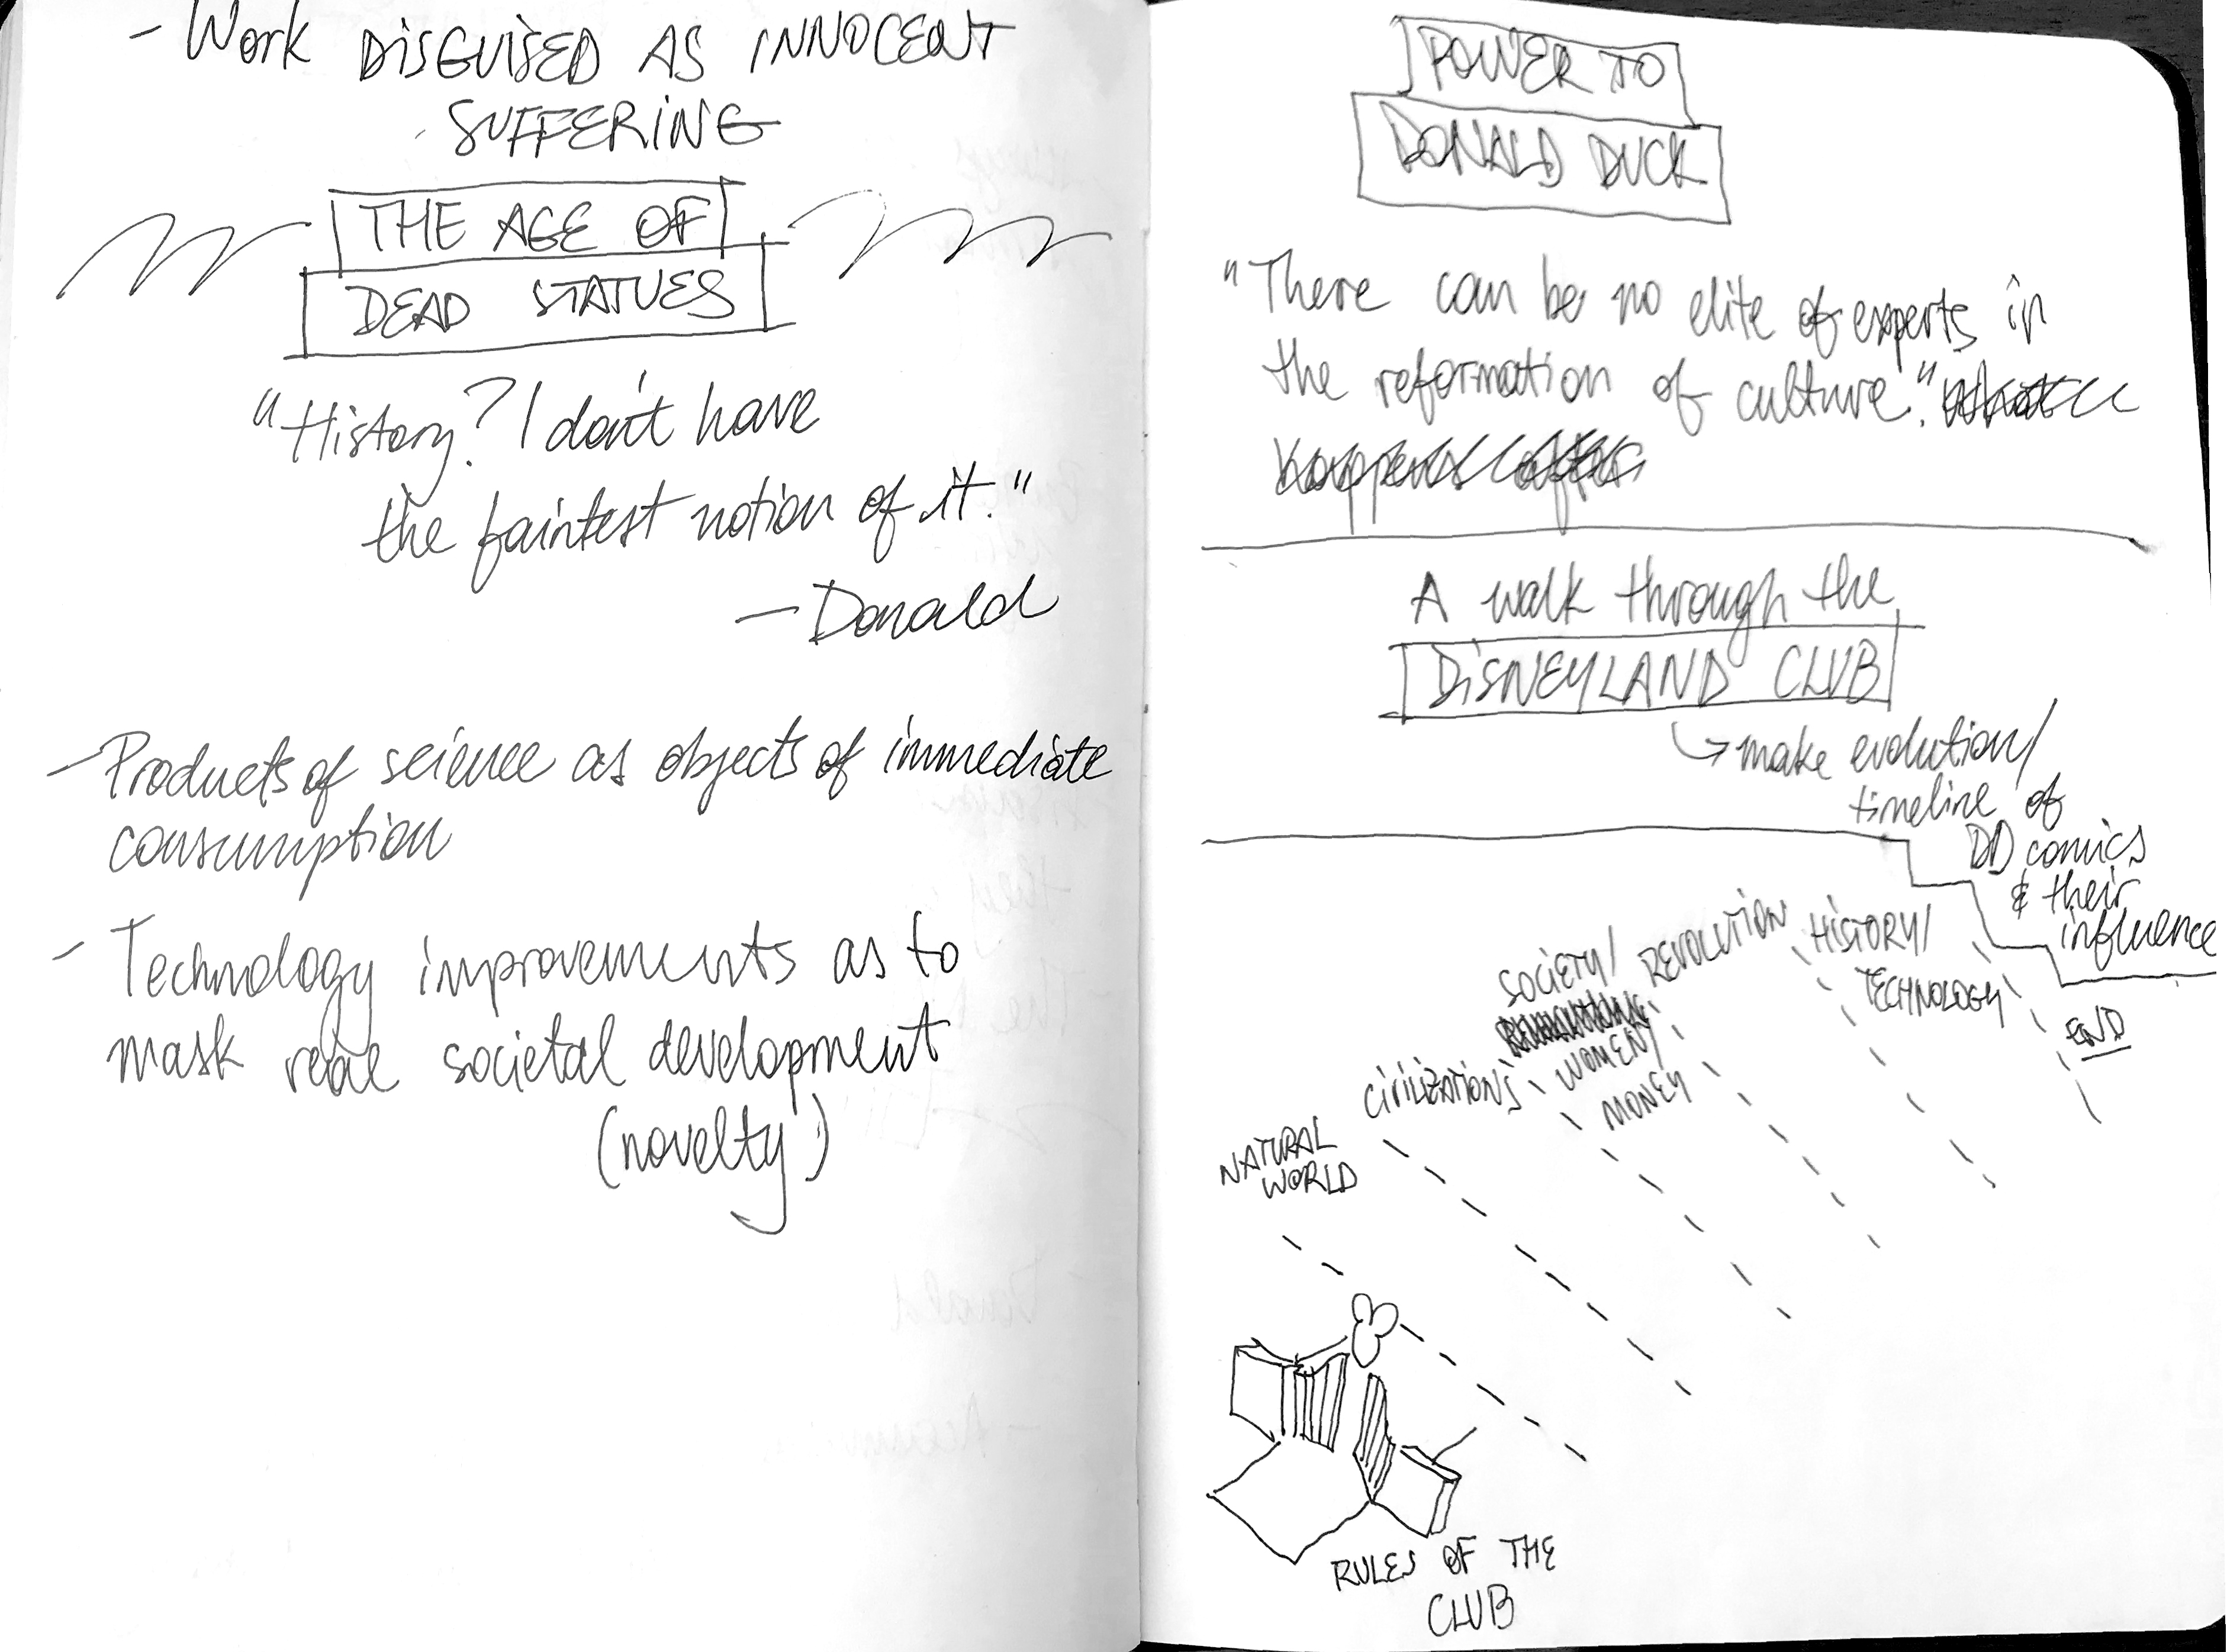 - Work DISGUISED AS INNOCENT
SUFFERING
THE AGE OF
DEAD STATUES
"History? I don't have
the faintest notion of it."
- Donald
- Products of science as objects of immediate
consumption
- Technology improvements as to
mask real societal development
(novelty)
POWER TO
DONALD DUCK
"There can be no elite of experts in
the reformation of culture."
A walk through the
DISNEYLAND CLUB
→ make evolution/
timeline of
DD comics
& their
influence
NATURAL
WORLD
CIVILIZATIONS
SOCIETY/
WOMEN/
MONEY
REVOLUTION
HISTORY/
TECHNOLOGY
END
RULES OF THE
CLUB